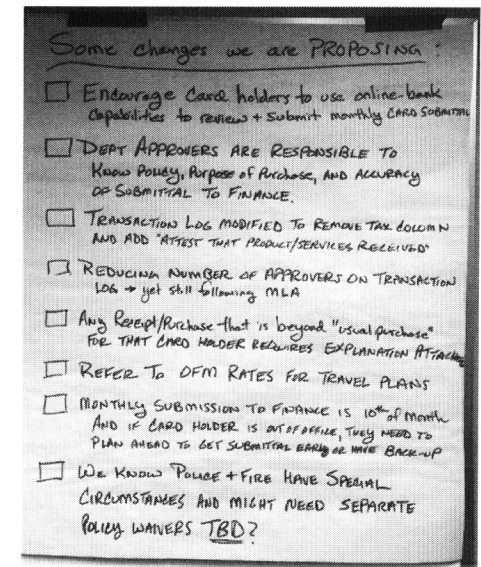 Some changes we are PROPOSING:
Encourage Card holders to use online-bank
capabilities to review + submit monthly CARD SUBMITTAL
DEPT APPROVERS ARE RESPONSIBLE TO
KNOW POLICY, PURPOSE OF PURCHASE, AND ACCURACY
OF SUBMITTAL TO FINANCE.
TRANSACTION LOG MODIFIED TO REMOVE TAX COLUMN
AND ADD "ATTEST THAT PRODUCT/SERVICES RECEIVED"
REDUCING NUMBER OF APPROVERS ON TRANSACTION
LOG → yet still following MLA
Any Receipt/Purchase that is beyond "usual purchase"
FOR THAT CARD HOLDER REQUIRES EXPLANATION ATTACHED
REFER TO OFM RATES FOR TRAVEL PLANS
MONTHLY SUBMISSION TO FINANCE IS 10th of Month
AND IF CARD HOLDER IS OUT OF OFFICE, THEY NEED TO
PLAN AHEAD TO GET SUBMITTAL EARLY OR HAVE BACK-UP
WE KNOW POLICE + FIRE HAVE SPECIAL
CIRCUMSTANCES AND MIGHT NEED SEPARATE
POLICY WAIVERS TBD?